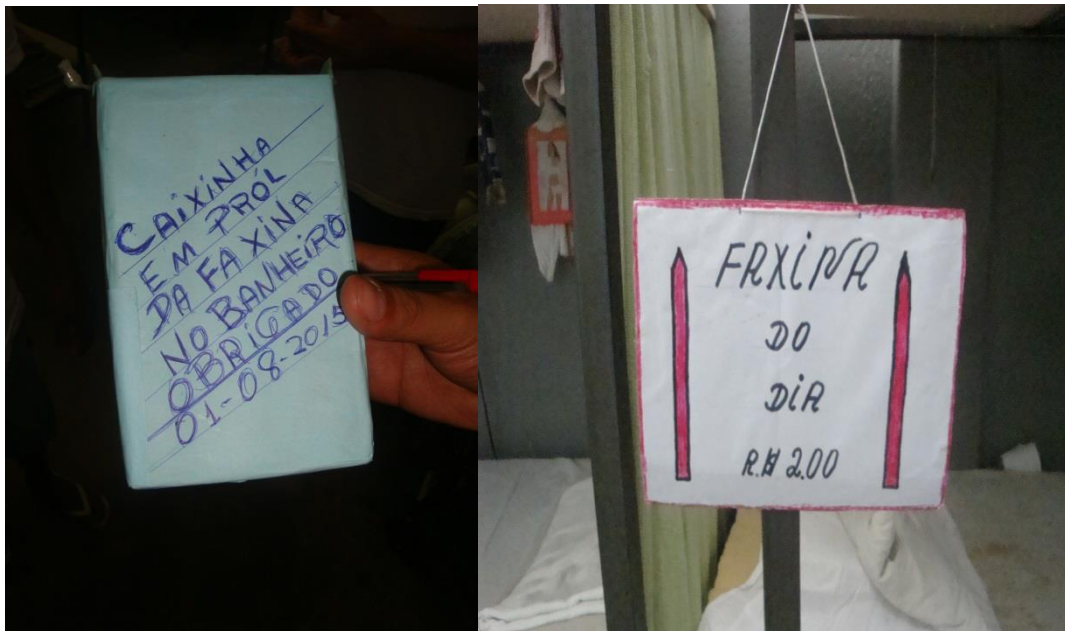 CAIXINHA
EM PRÓL
DA FAXINA
NO BANHEIRO
OBRIGADO
01-08-2015
FAXINA
DO
DIA
R.$ 2.00